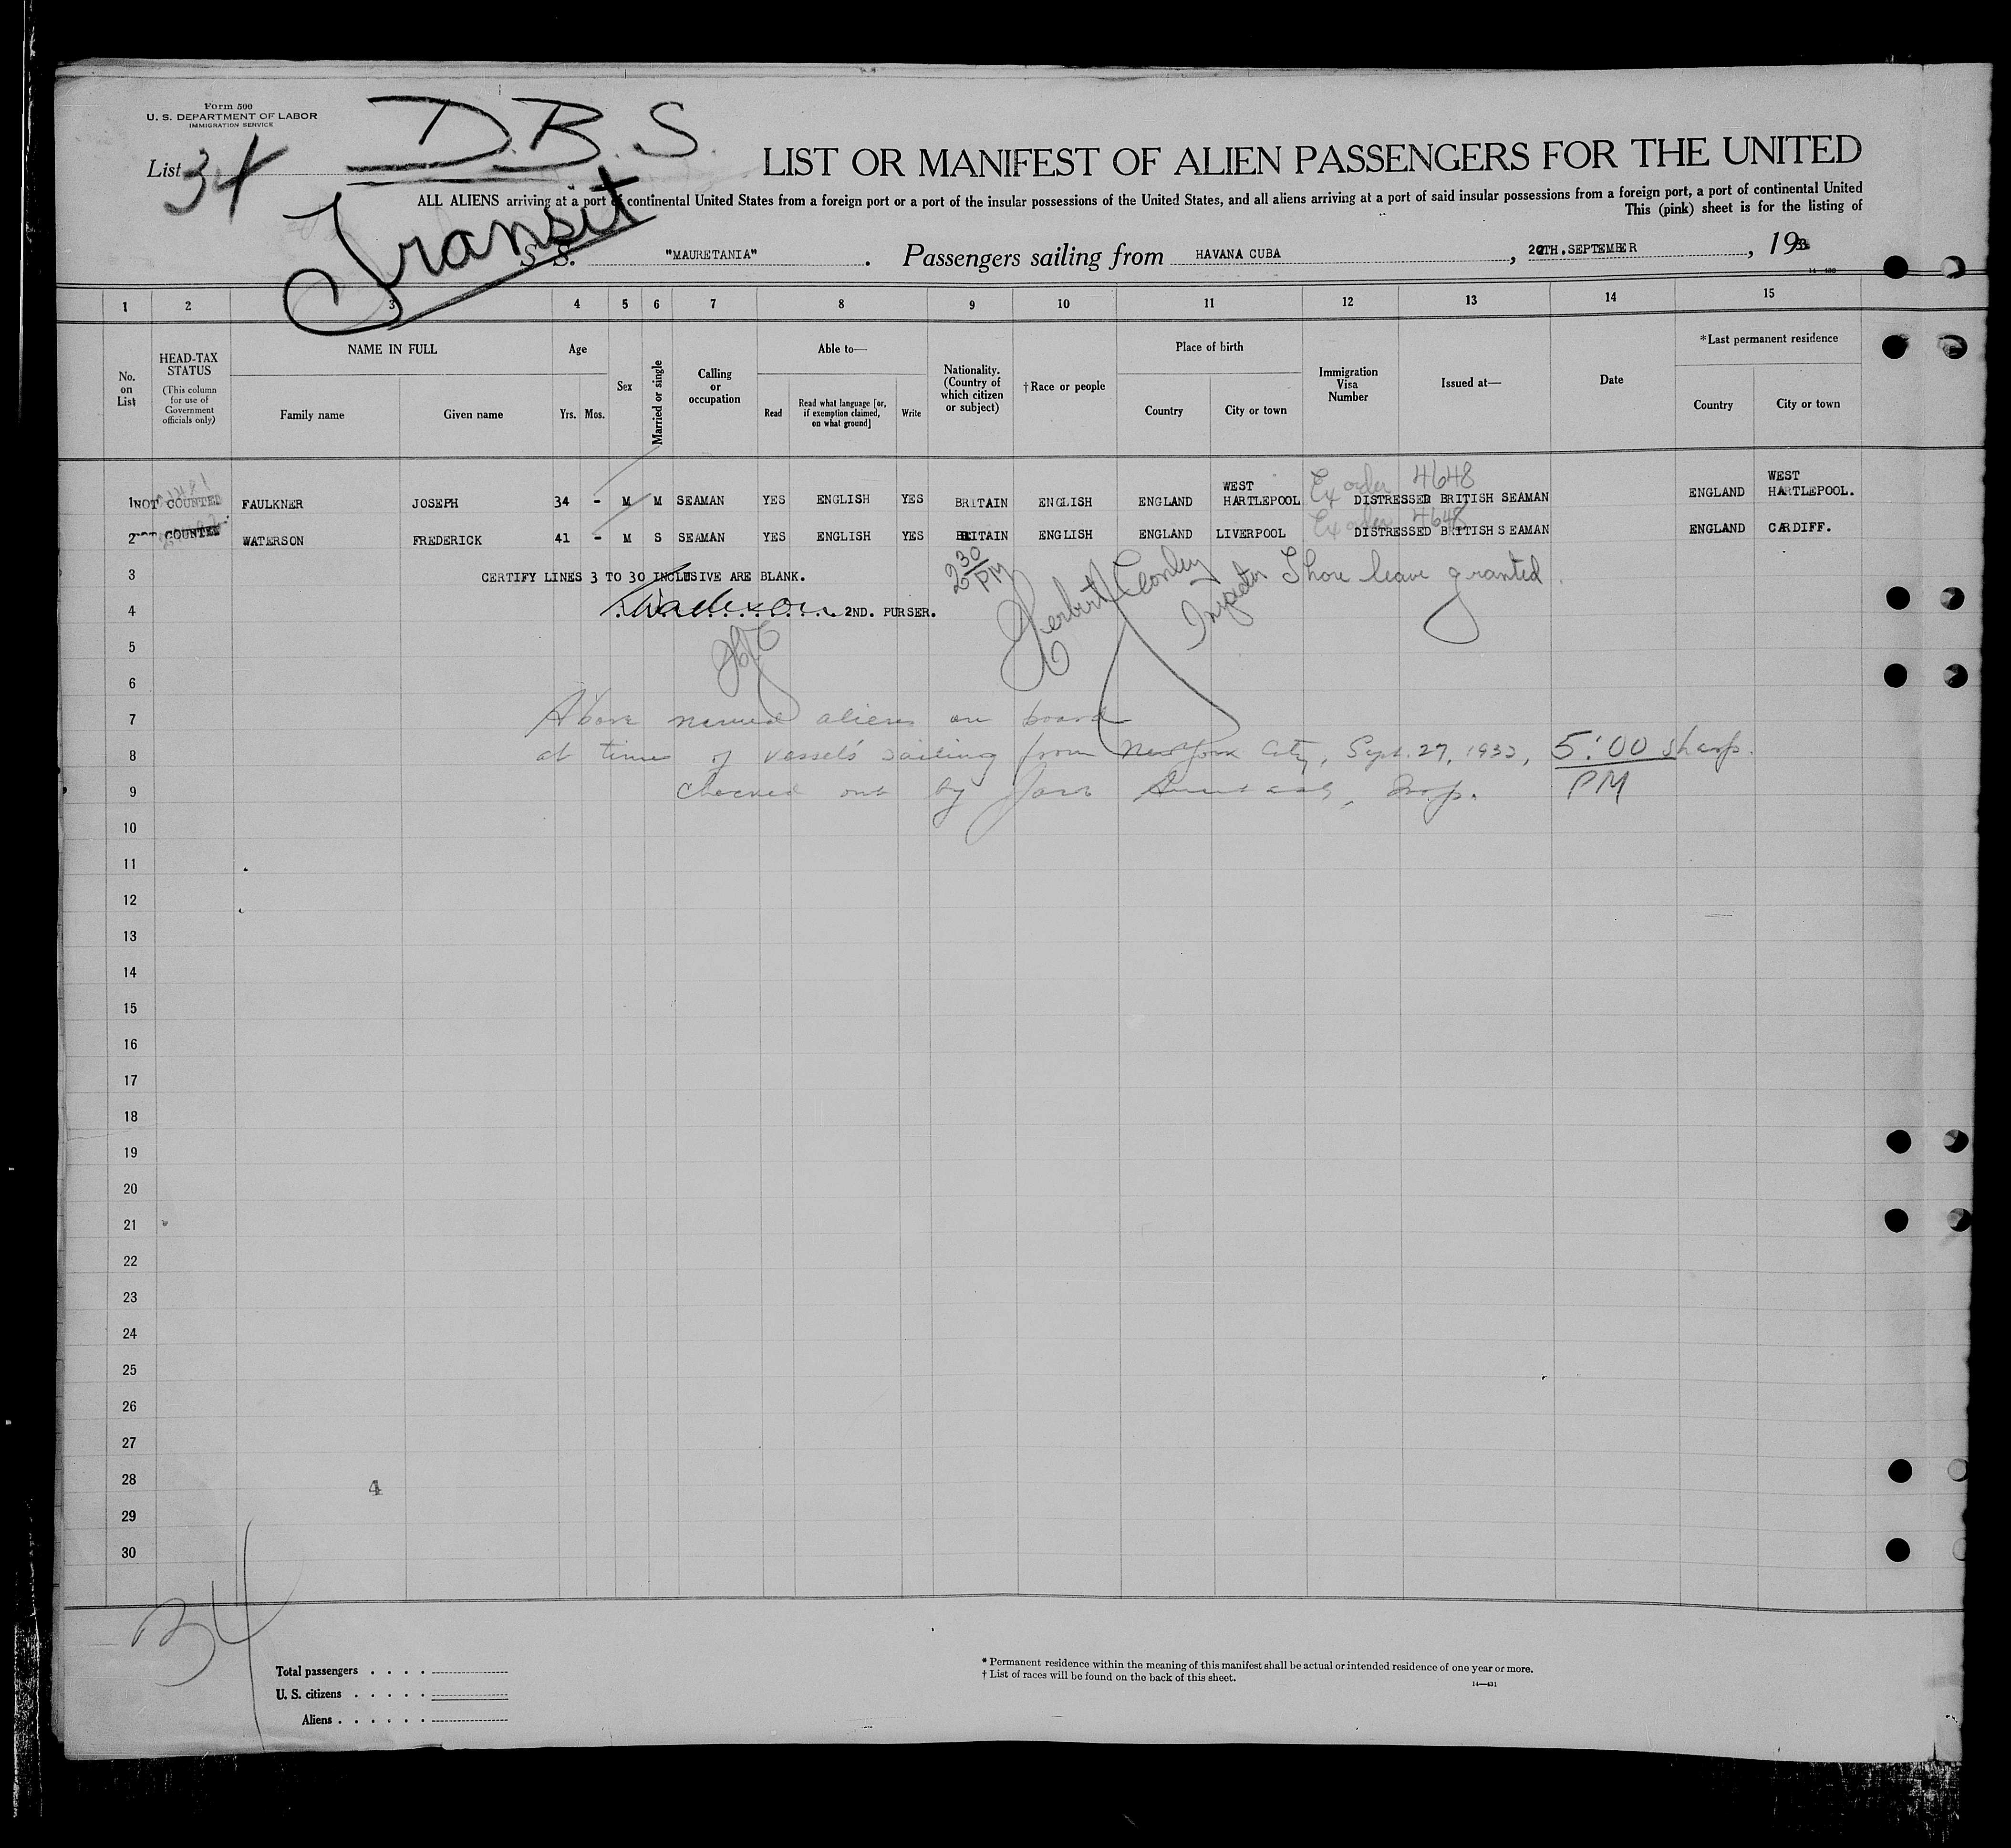 Form 500
U. S. DEPARTMENT OF LABOR
IMMIGRATION SERVICE
D.B.S.
List 34
Transit
LIST OR MANIFEST OF ALIEN PASSENGERS FOR THE UNITED
ALL ALIENS arriving at a port of continental United States from a foreign port or a port of the insular possessions of the United States, and all aliens arriving at a port of said insular possessions from a foreign port, a port of continental United
This (pink) sheet is for the listing of
S. S. "MAURETANIA". Passengers sailing from HAVANA CUBA, 20TH.SEPTEMBER, 193
14—430
1 2 3 4 5 6 7 8 9 10 11 12 13 14 15
No. on List
HEAD-TAX STATUS
(This column for use of Government officials only)
NAME IN FULL
Family name
Given name
Age
Yrs. Mos.
Sex
Married or single
Calling or occupation
Able to—
Read
Read what language [or, if exemption claimed, on what ground]
Write
Nationality. (Country of which citizen or subject)
†Race or people
Place of birth
Country
City or town
Immigration Visa Number
Issued at—
Date
*Last permanent residence
Country
City or town
1 NOT COUNTED FAULKNER JOSEPH 34 - M M SEAMAN YES ENGLISH YES BRITAIN ENGLISH ENGLAND WEST HARTLEPOOL Ex order 4648 DISTRESSED BRITISH SEAMAN ENGLAND WEST HARTLEPOOL.
2 NOT COUNTED WATERSON FREDERICK 41 - M S SEAMAN YES ENGLISH YES BRITAIN ENGLISH ENGLAND LIVERPOOL Ex order 4648 DISTRESSED BRITISH SEAMAN ENGLAND CARDIFF.
3 CERTIFY LINES 3 TO 30 INCLUSIVE ARE BLANK. 2 30 PM Herbert Inspector Shore leave granted.
4 2ND. PURSER.
5
6
7 Above named aliens on board
8 at time of vessel's sailing from New York City, Sept. 27, 1932, 5:00 sharp.
9 checked out by Insp. PM
10
11
12
13
14
15
16
17
18
19
20
21
22
23
24
25
26
27
28
4
29
30
34
Total passengers . . . .
U. S. citizens . . . . .
Aliens . . . . . .
* Permanent residence within the meaning of this manifest shall be actual or intended residence of one year or more.
† List of races will be found on the back of this sheet.
14—431